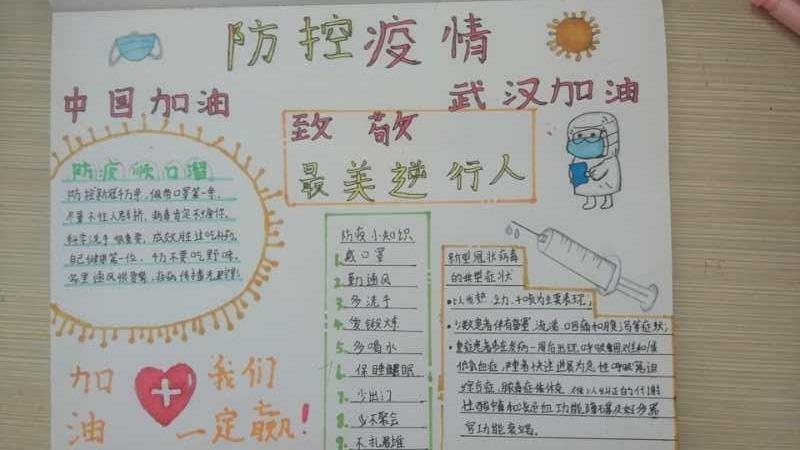 防控疫情
中国加油
武汉加油
致敬
最美逆行人
防疫顺口溜
防控新冠千万条,佩带口罩第一条。
尽量不往人群挤,病毒肯定不理你。
科学洗手很重要,成效胜过吃补药。
自己健康第一位,千万不要吃野味。
防疫小知识
1.戴口罩
2.勤通风
3.多洗手
4.常锻炼
5.多喝水
6.保睡眠
7.少出门
8.少聚会
9.不扎堆
新型冠状病毒
的典型症状
•以发热、乏力、干咳为主要表现;
•少数患者伴有鼻塞、流涕、咽痛和腹泻等症状;
•重症患者多在发病一周后出现呼吸困难和/或
低氧血症,严重者快速进展为急性呼吸窘迫
综合症、脓毒症休克、难以纠正的代谢
性酸中毒和出凝血功能障碍及多器
官功能衰竭。
加油
我们
一定赢!